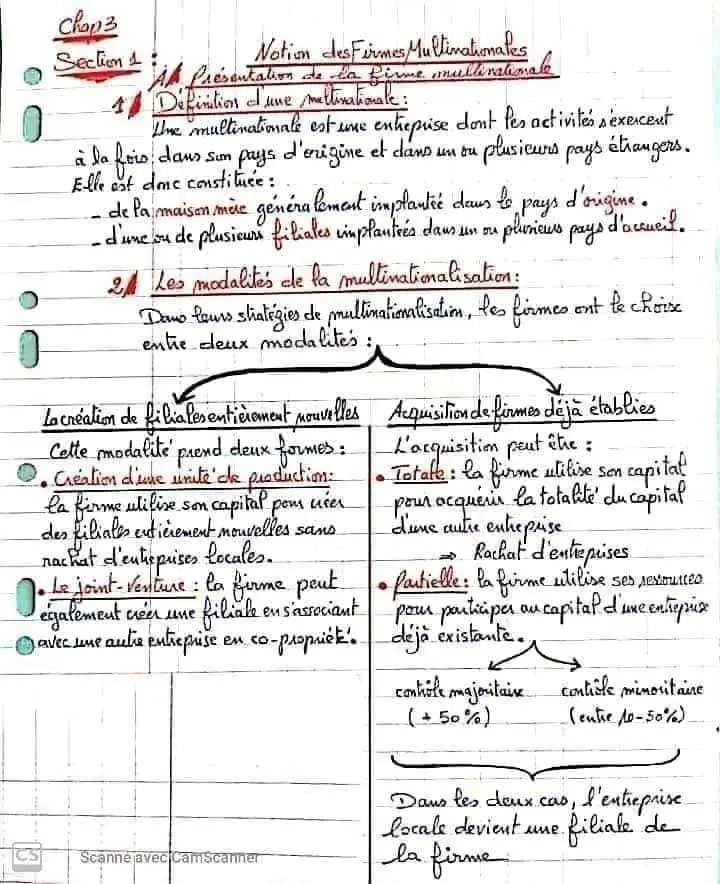 Chap 3
Section 1 :
Notion des Firmes Multinationales
A/ Présentation de la firme multinationale
1/ Définition d'une multinationale :
Une multinationale est une entreprise dont les activités s'exercent
à la fois, dans son pays d'origine et dans un ou plusieurs pays étrangers.
Elle est donc constituée :
- de la maison mère généralement implantée dans le pays d'origine.
- d'une ou de plusieurs filiales implantées dans un ou plusieurs pays d'accueil.
2/ Les modalités de la multinationalisation :
Dans leurs stratégies de multinationalisation, les firmes ont le choix
entre deux modalités :
La création de filiales entièrement nouvelles
Cette modalité prend deux formes :
• Création d'une unité de production :
la firme utilise son capital pour créer
des filiales entièrement nouvelles sans
rachat d'entreprises locales.
• Le joint-venture : la firme peut
également créer une filiale en s'associant
avec une autre entreprise en co-propriété.
Acquisition de firmes déjà établies
L'acquisition peut être :
• Totale : la firme utilise son capital
pour acquérir la totalité du capital
d'une autre entreprise
⇒ Rachat d'entreprises
• Partielle : la firme utilise ses ressources
pour participer au capital d'une entreprise
déjà existante.
contrôle majoritaire
(+ 50%)
contrôle minoritaire
(entre 10-50%)
Dans les deux cas, l'entreprise
locale devient une filiale de
la firme
CS Scanné avec CamScanner